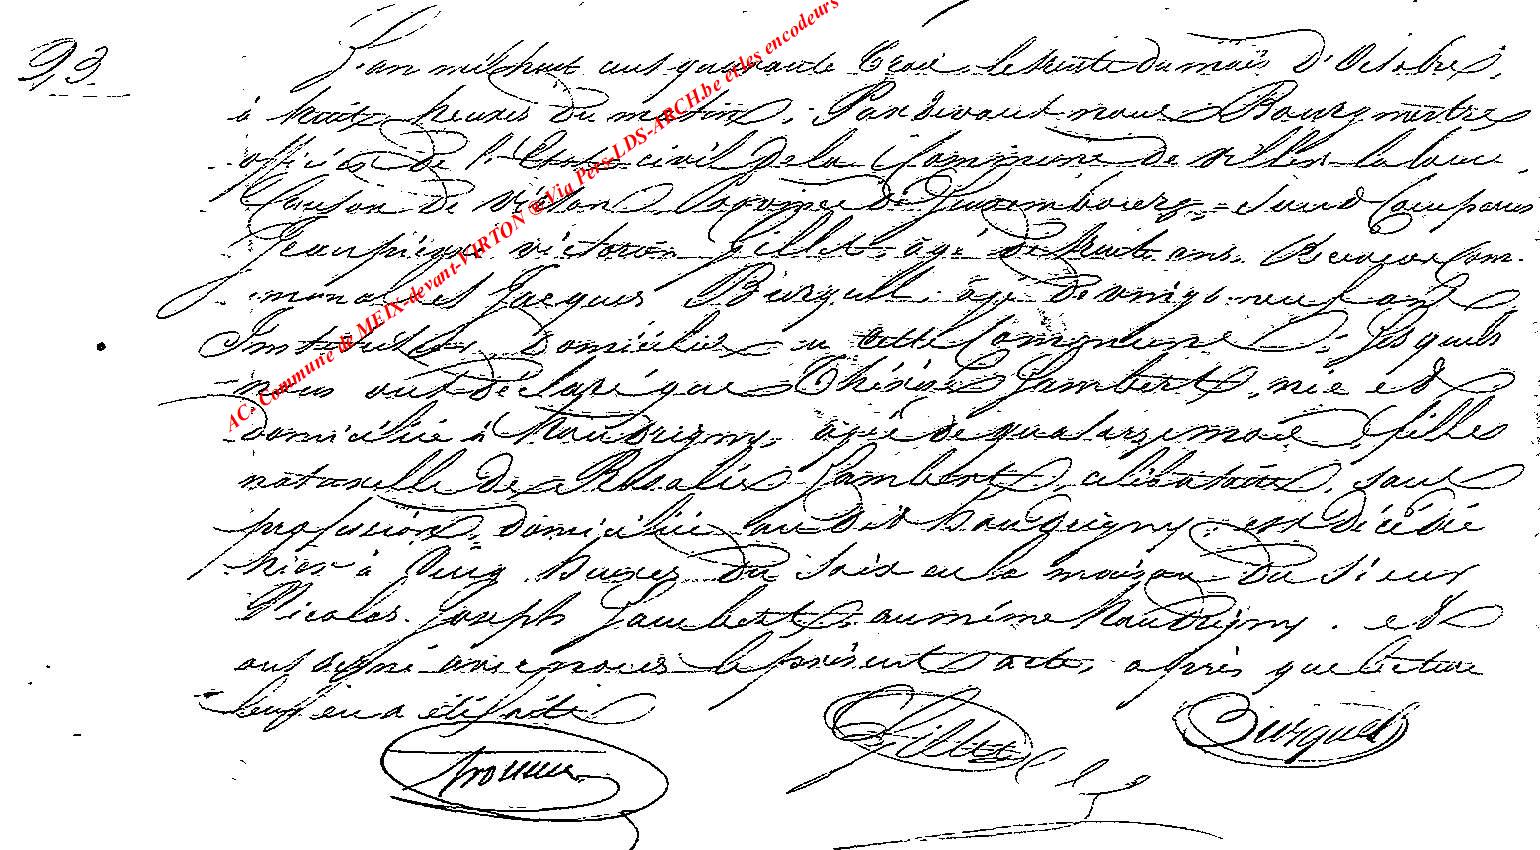 93.
L'an mil huit cent quarante trois, le trente du mois d'Octobre,
à huit heures du matin, Pardevant nous Bourgmestre
officier de l'Etat civil de la Commune de Villers la loue
Canton de Virton, Province de Luxembourg, sont Comparus
Jean pierre victorin Gillet, agé de trente ans, Receveur Com-
munal et Jacques Burquel, agé de vingt neuf ans
Instituteur, domiciliés en cette Commune, Lesquels
nous ont déclaré que Thérèse Lambert, née et
domiciliée à houdrigny, agée de quatorze mois, fille
naturelle de Rosalie Lambert, celibataire, sans
profession, domiciliée audit houdrigny, est décédée
hier à Cinq heures du soir en la maison du sieur
Nicolas Joseph Lambert, au même houdrigny. et
ont signé avec nous le présent acte, après que lecture
leur en a été faite
Gillet Burquel
AC. Commune de MEIX-devant-VIRTON @Via Pers-LDS-ARCH.be et les encodeurs